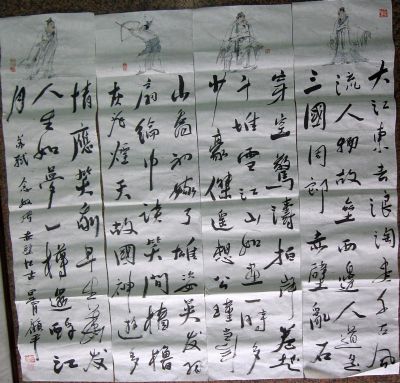 大江東去浪淘盡千古風
流人物故壘西邊人道是
三國周郎赤壁亂石
穿空驚濤拍岸卷起
千堆雪江山如畫一時多
少豪傑遙想公瑾當年
小喬初嫁了雄姿英发羽
扇綸巾談笑間檣櫓
灰飛煙灭故國神遊多
情應笑我早生華发
人生如夢一樽還酹江
月
蘇軾念奴嬌赤壁怀古